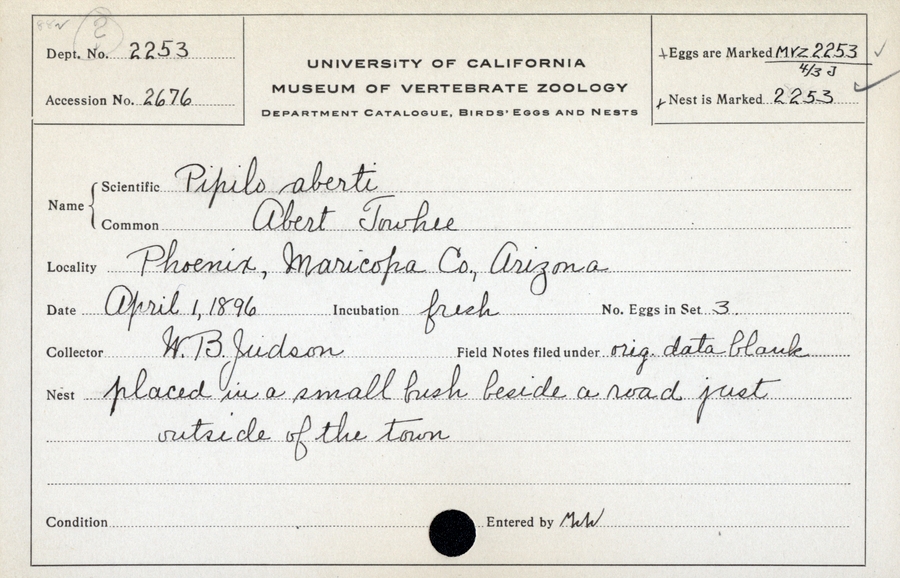 Dept. No. 2253
Accession No. 2676
UNIVERSITY OF CALIFORNIA
MUSEUM OF VERTEBRATE ZOOLOGY
DEPARTMENT CATALOGUE, BIRDS' EGGS AND NESTS
Eggs are Marked MVZ 2253
4/3 J
Nest is Marked 2253
Name
Scientific Pipilo aberti
Common Abert Towhee
Locality Phoenix, Maricopa Co., Arizona
Date April 1, 1896 Incubation fresh No. Eggs in Set 3.
Collector W. B. Judson Field Notes filed under orig. data blank
Nest placed in a small bush beside a road just
outside of the town
Condition Entered by